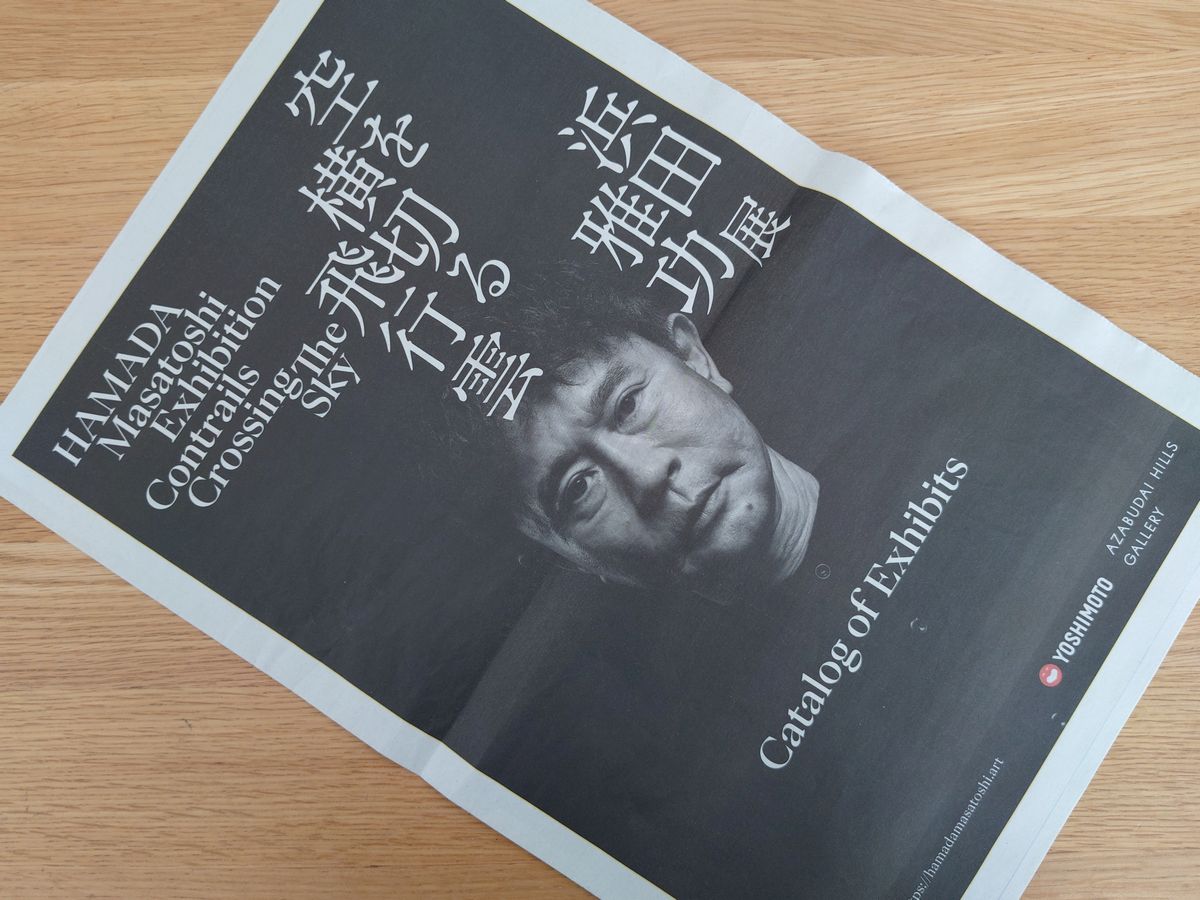 空を
横切る
飛行雲
浜田
雅功
展
HAMADA
Masatoshi
Exhibition
Contrails
Crossing The
Sky
Catalog of Exhibits
AZABUDAI HILLS
GALLERY
YOSHIMOTO
ps://hamadamasatoshi.art